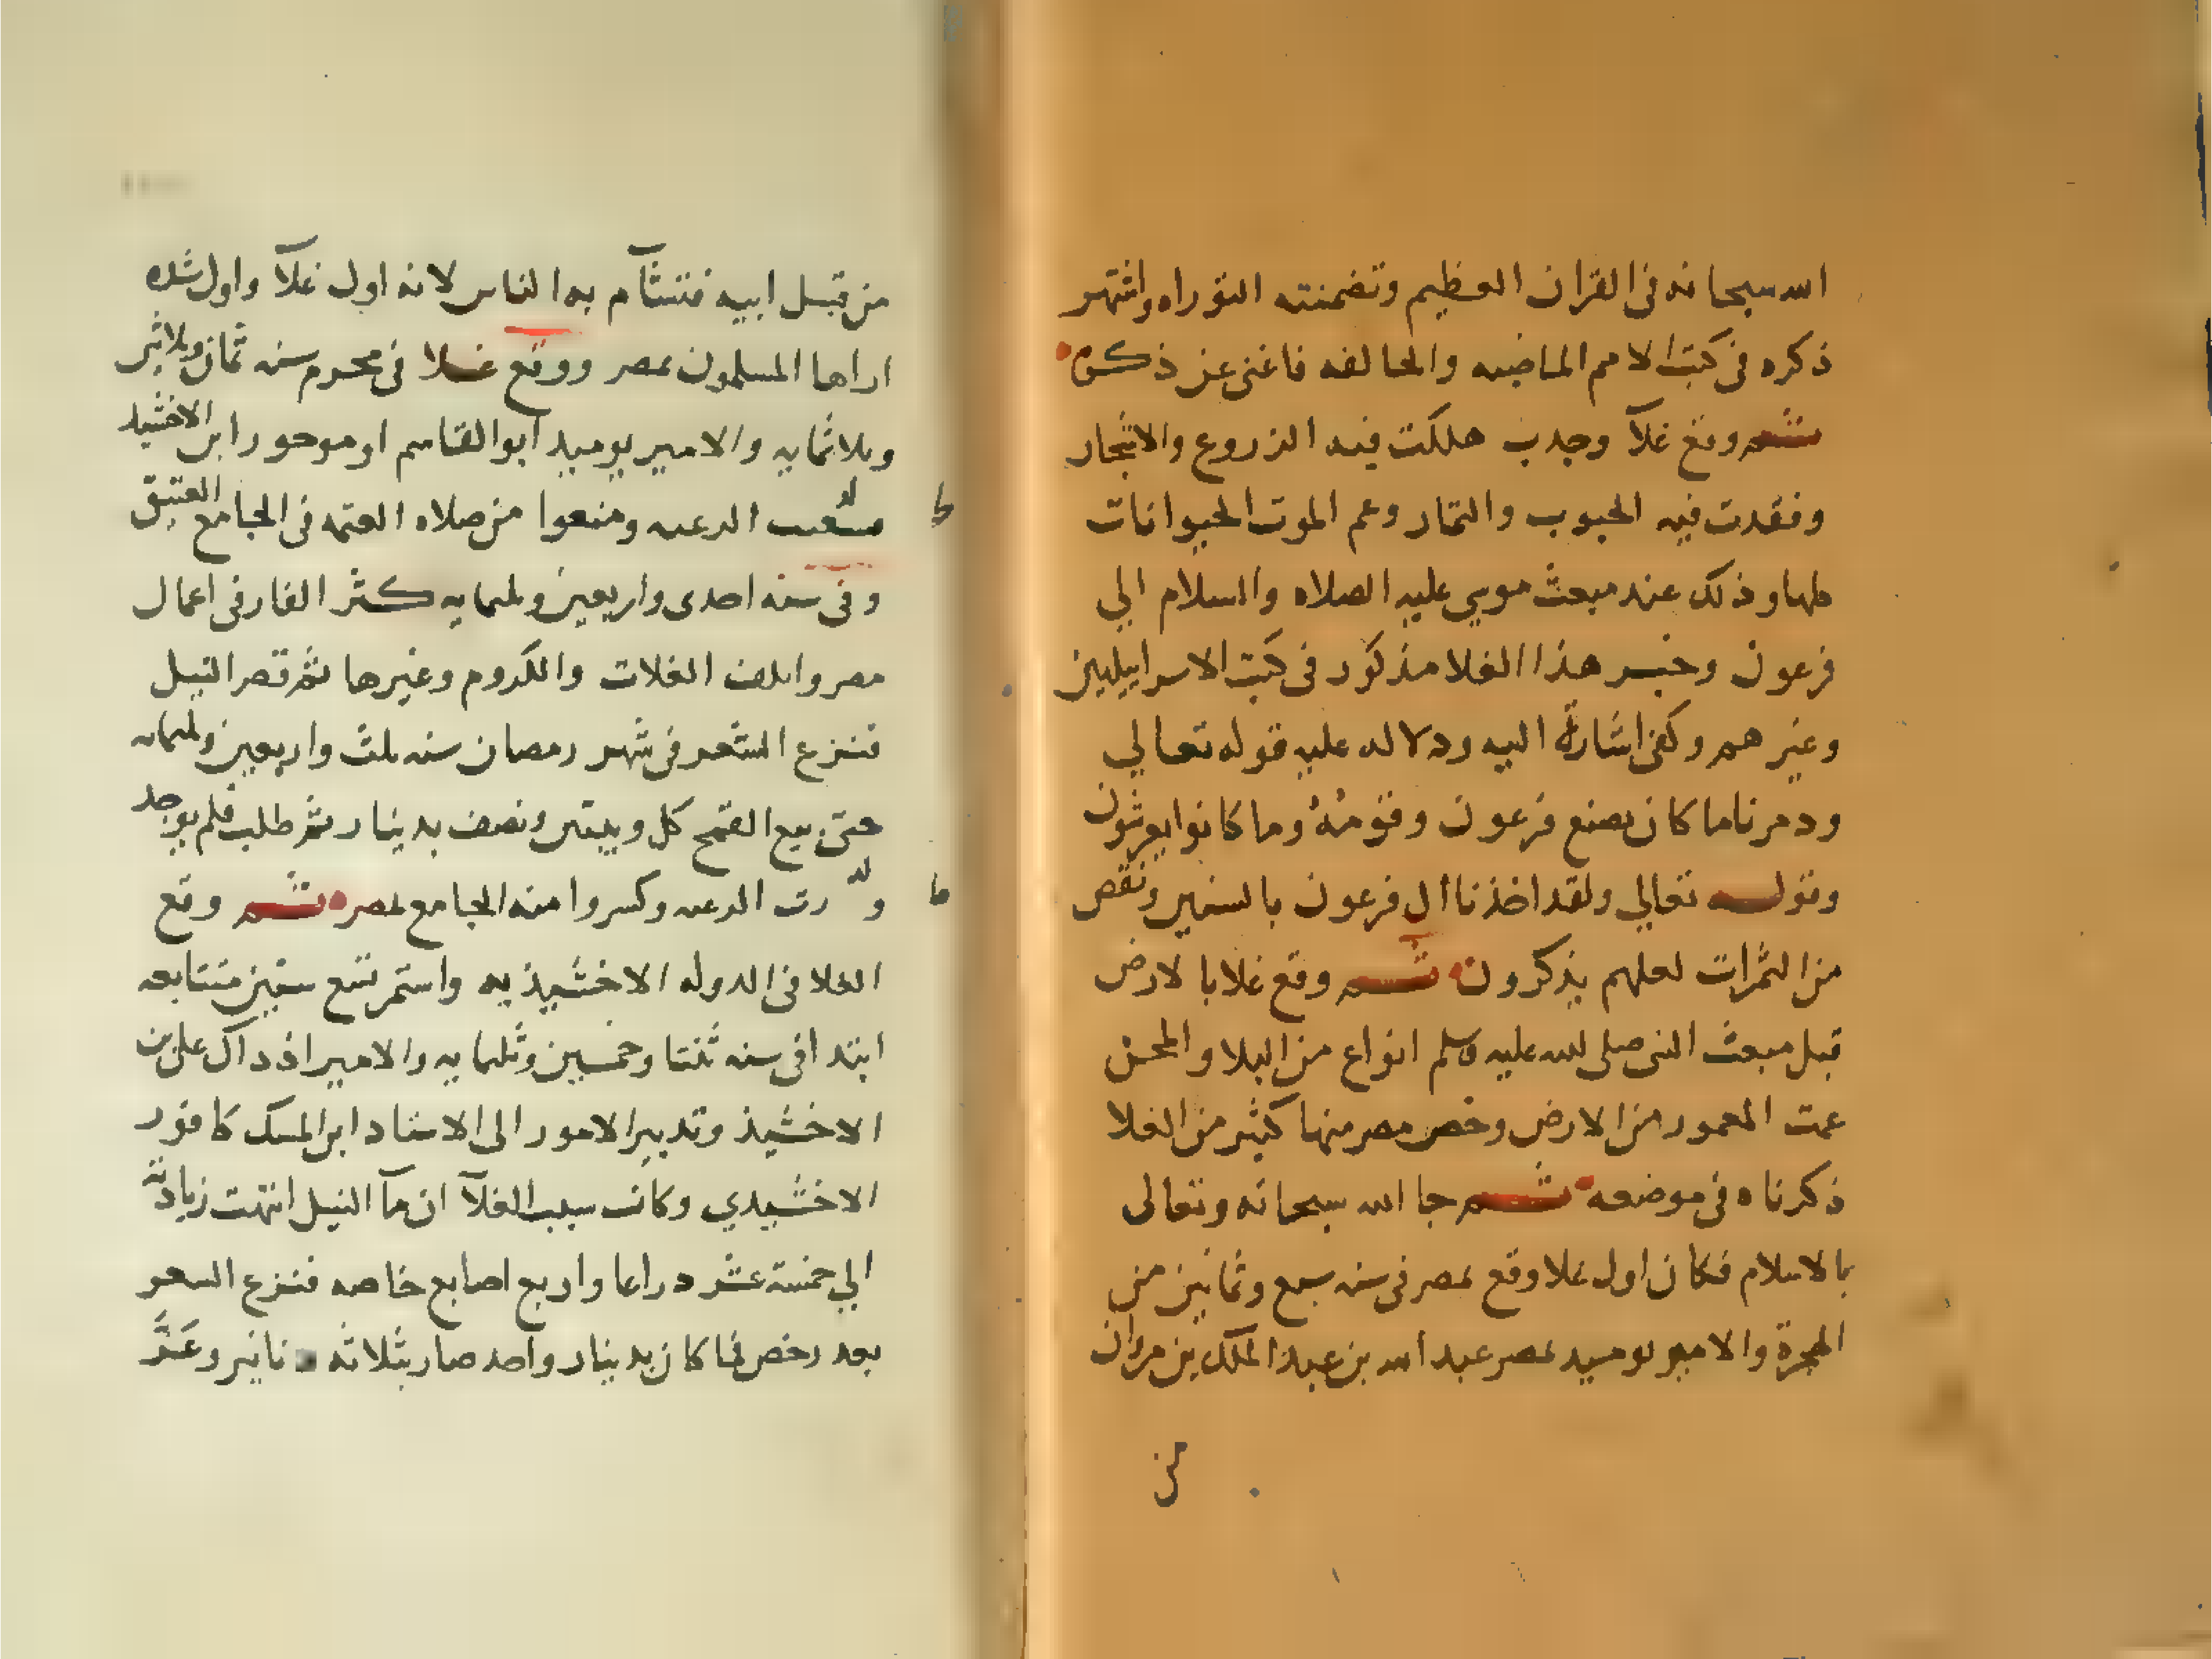 الله سبحانه فى القران العظيم وتضمنته التوراه واشتهر
ذكره فى كتب الامم الماضيه والخالفه فاغنى عن ذكره
ثم وقع غلآ وجدب هلكت فيه الزروع والاشجار
وفقدت فيه الحبوب والثمار وعم الموت الحيوانات
كلها وذلك عند مبعث موسى عليه الصلاه والسلام الي
فرعون وخبر هذا الغلا مذكور فى كتب الاسراييليين
وغيرهم وكفى اشارة اليه ودلاله عليه قوله تعالي
ودمرنا ما كان يصنع فرعون وقومُهُ وما كانوا يعرشون
وقوله تعالي ولقد اخذنا ال فرعون بالسنين ونقص
من الثمرات لعلهم يذكرون ثم وقع غلا بالارض
قبل مبعث النبى صلى الله عليه وسلم انواع من البلا والمحن
عمت المعمور من الارض وخص مصر منها كثير من الغلا
ذكرناه فى موضعه ثم جا الله سبحانه وتعالى
بالاسلام فكان اول غلا وقع بمصر فى سنه سبع وثمانين من
الهجرة والامير يوميد بمصر عبد الله بن عبد الملك بن مروان
من
من قبل ابيه فتشآم به الناس لانه اول غلآ واول شده
اراها المسلمون بمصر ووقع غلا فى محرم سنه ثمان وثلاثين
وثلاثمايه والامير يوميد ابو القاسم اوموحور ابن الاخشيد
فشغبت الرعيه ومنعوا من صلاه العتمه فى الجامع العتيق
وفى سنه احدى واربعين وثلثمايه كثر الفار فى اعمال
مصر واتلف الغلات والكروم وغيرها ثم قصر النيل
فنزع السعر فى شهر رمضان سنه ثلث واربعين وثلثمايه
حتى بيع القمح كل ويبتين ونصف بدينار ثم طلب فلم يوجد
وثارت الرعيه وكسروا منبر الجامع بمصر ثم وقع
الغلا فى الدوله الاخشيذيه واستمر تسع سنين متتابعه
ابتدا فى سنه ثنتا وخمسين وثلثمايه والامير اذ داك على بن
الاخشيذ وتدبير الامور الى الاستاد ابى المسك كافور
الاخشيدي وكان سبب الغلآ ان مآ النيل انتهت زيادته
الي خمسة عشر دراعا واربع اصابع خاصه فنزع السعر
بعد رخص فما كان بدينار واحد صار بثلاثه دنانير وعَزَّ